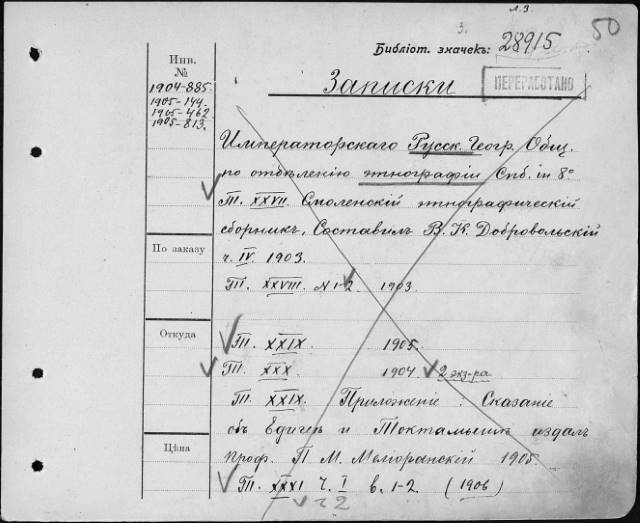 л.3.
3.
50
Библіот. значекъ: 28915
Инв.
№
1904-885.
1905-144.
1905-462
1905-813.
Записки
ПЕРЕРАБОТАНО
Императорскаго Русск. Геогр. Общ.
по отдѣленію этнографіи Спб. in 8°
Т. XXVII. Смоленскій этнографическій
сборникъ, Составилъ В. Н. Добровольскій
ч. IV. 1903.
По заказу
Т. XXVIII. N 1-2 1903.
Откуда
Т. XXIX 1905.
Т. XXX 1904 2 экз-ра
Т. XXIX. Приложеніе: Сказаніе
объ Едигеѣ и Токтамышѣ издалъ
Цѣна
проф. П. М. Меліоранскій 1905.
Т. XXXI Ч. I в. 1-2 (1906)
ч 2